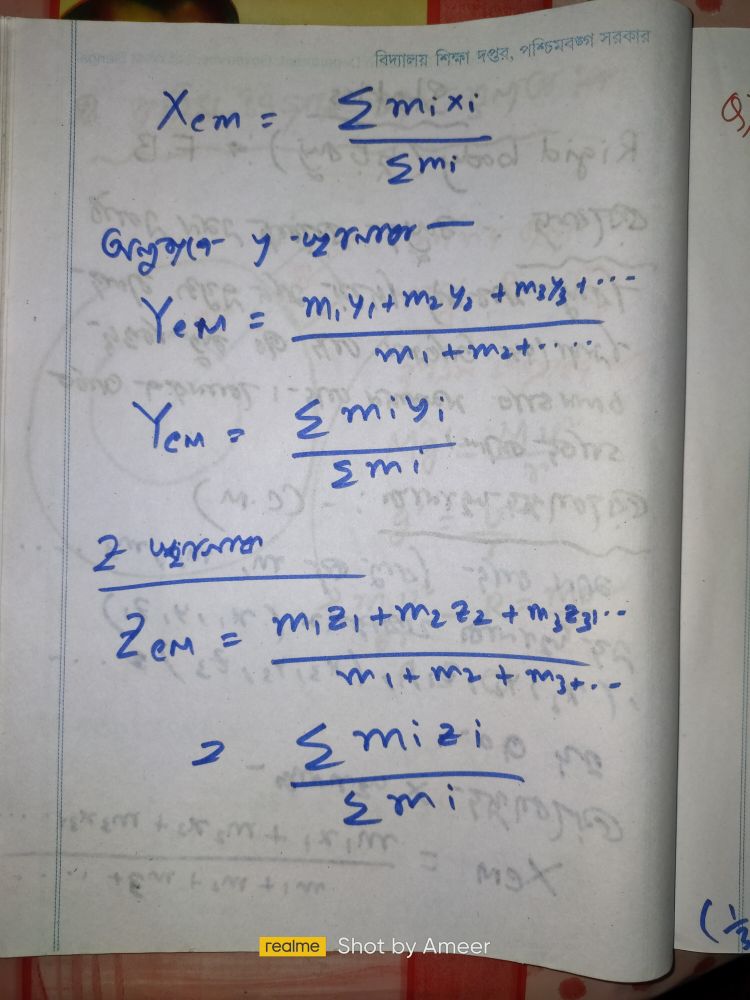 বিদ্যালয় শিক্ষা দপ্তর, পশ্চিমবঙ্গ সরকার
Xcm = Σmixi / Σmi
অনুরূপে y -স্থানাঙ্ক —
Ycm = m1y1 + m2y2 + m3y3 + ... / m1 + m2 + .....
Ycm = Σmiyi / Σmi
Z স্থানাঙ্ক
Zcm = m1z1 + m2z2 + m3z3... / m1 + m2 + m3 + ...
= Σmizi / Σmi
realme Shot by Ameer